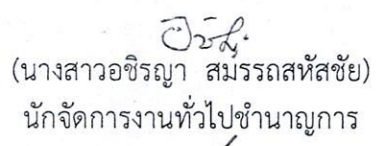 (นางสาวอชิรญา สมรรถสหัสชัย)
นักจัดการงานทั่วไปชำนาญการ